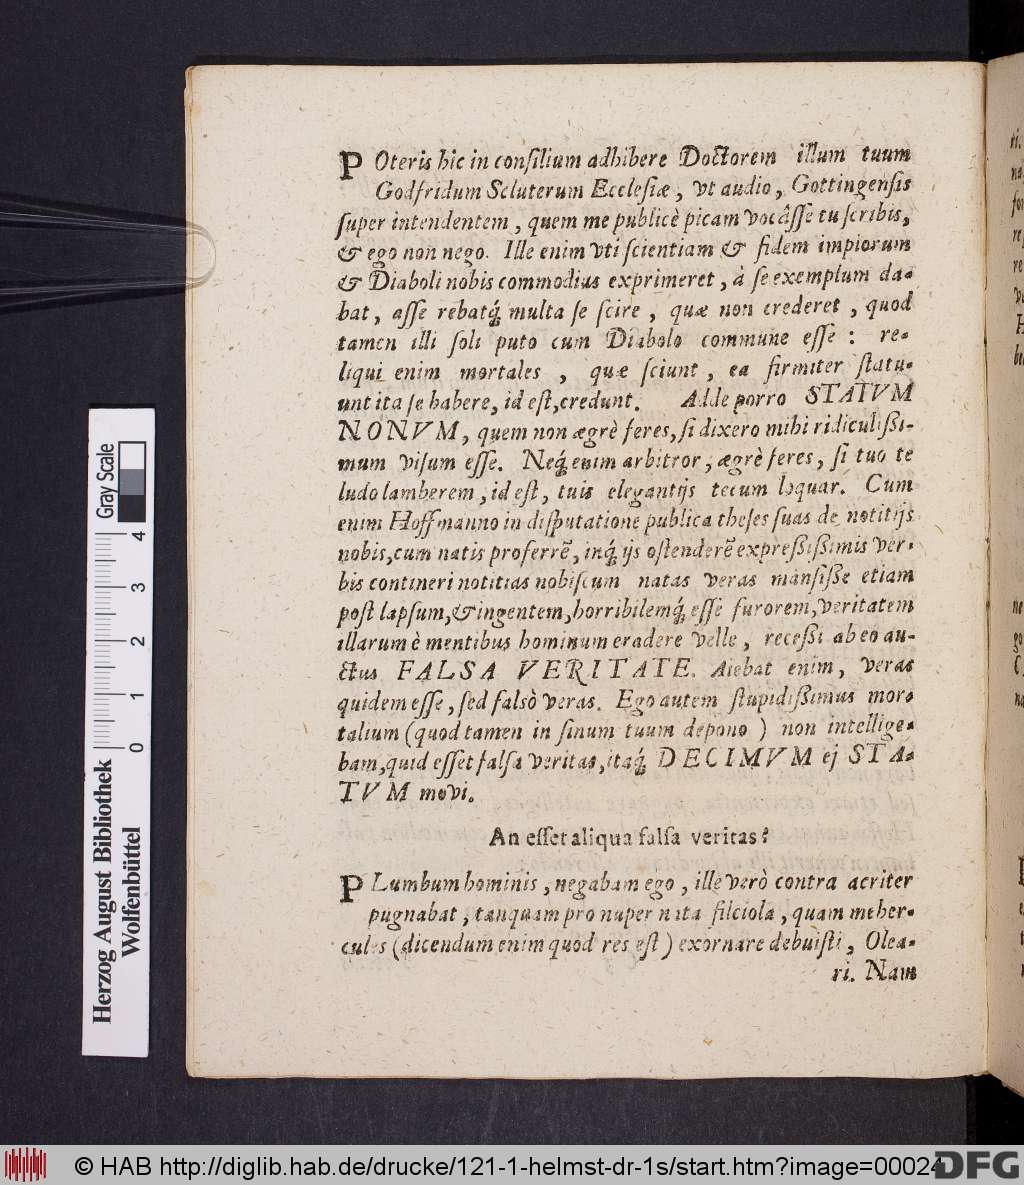 POteris hic in consilium adhibere Doctorem illum tuum
Godfridum Scluterum Ecclesiæ, vt audio, Gottingensis
super intendentem, quem me publicè picam vocâsse tu scribis,
& ego non nego. Ille enim vti scientiam & fidem impiorum
& Diaboli nobis commodius exprimeret, à se exemplum da-
bat, asse rebatq́; multa se scire, quæ non crederet, quod
tamen illi soli puto cum Diabolo commune esse: re-
liqui enim mortales, quæ sciunt, ea firmiter statu-
unt ita se habere, id est, credunt. Adde porro STATVM
NONVM, quem non ægrè feres, si dixero mihi ridiculißi-
mum visum esse. Neq́; enim arbitror, ægrè feres, si tuo te
ludo lamberem, id est, tuis elegantijs tecum loquar. Cum
enim Hoffmanno in disputatione publica theses suas de notitijs
nobiscum natis proferrē, inq́; ijs ostenderē expreßißimis ver-
bis contineri notitias nobiscum natas veras mansiße etiam
post lapsum, & ingentem, horribilemq́; esse furorem, veritatem
illarum è mentibus hominum eradere velle, receßi ab eo au-
ctus FALSA VERITATE. Aiebat enim, veras
quidem esse, sed falsò veras. Ego autem stupidißimus mor-
talium (quod tamen in sinum tuum depono) non intellige-
bam, quid esset falsa veritas, itaq́; DECIMVM ej STA-
TVM movi.
An esset aliqua falsa veritas?
PLumbum hominis, negabam ego, ille verò contra acriter
pugnabat, tanquam pro nuper nata filiola, quam meher-
cules (dicendum enim quod res est) exornare debuisti, Olea-
ri. Nam
Gray Scale
0 1 2 3 4
Herzog August Bibliothek
Wolfenbüttel
© HAB http://diglib.hab.de/drucke/121-1-helmst-dr-1s/start.htm?image=00024
DFG